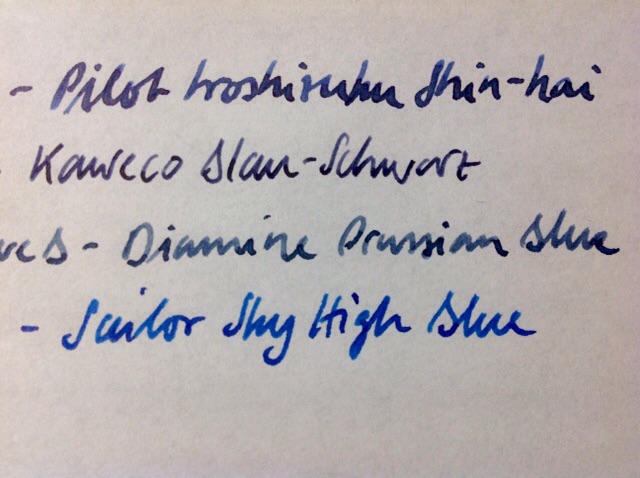 - Pilot Iroshizuku Shin-kai
Kaweco Blau-Schwarz
- Diamine Prussian Blue
- Sailor Sky High Blue